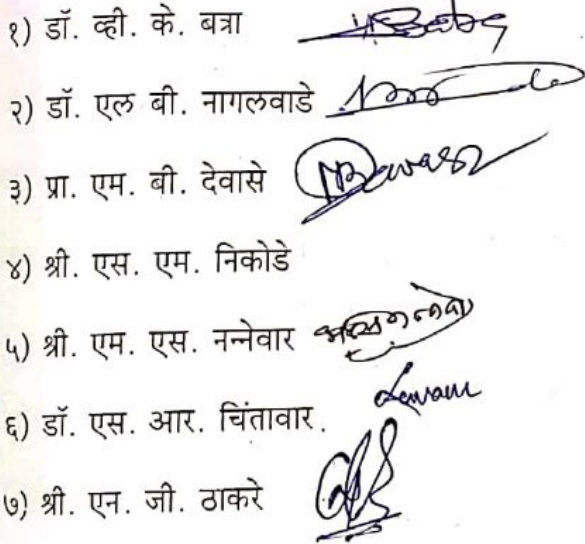 १) डॉ. व्ही. के. बत्रा
२) डॉ. एल बी. नागलवाडे
३) प्रा. एम. बी. देवासे
४) श्री. एस. एम. निकोडे
५) श्री. एम. एस. नन्नेवार
६) डॉ. एस. आर. चिंतावार.
७) श्री. एन. जी. ठाकरे